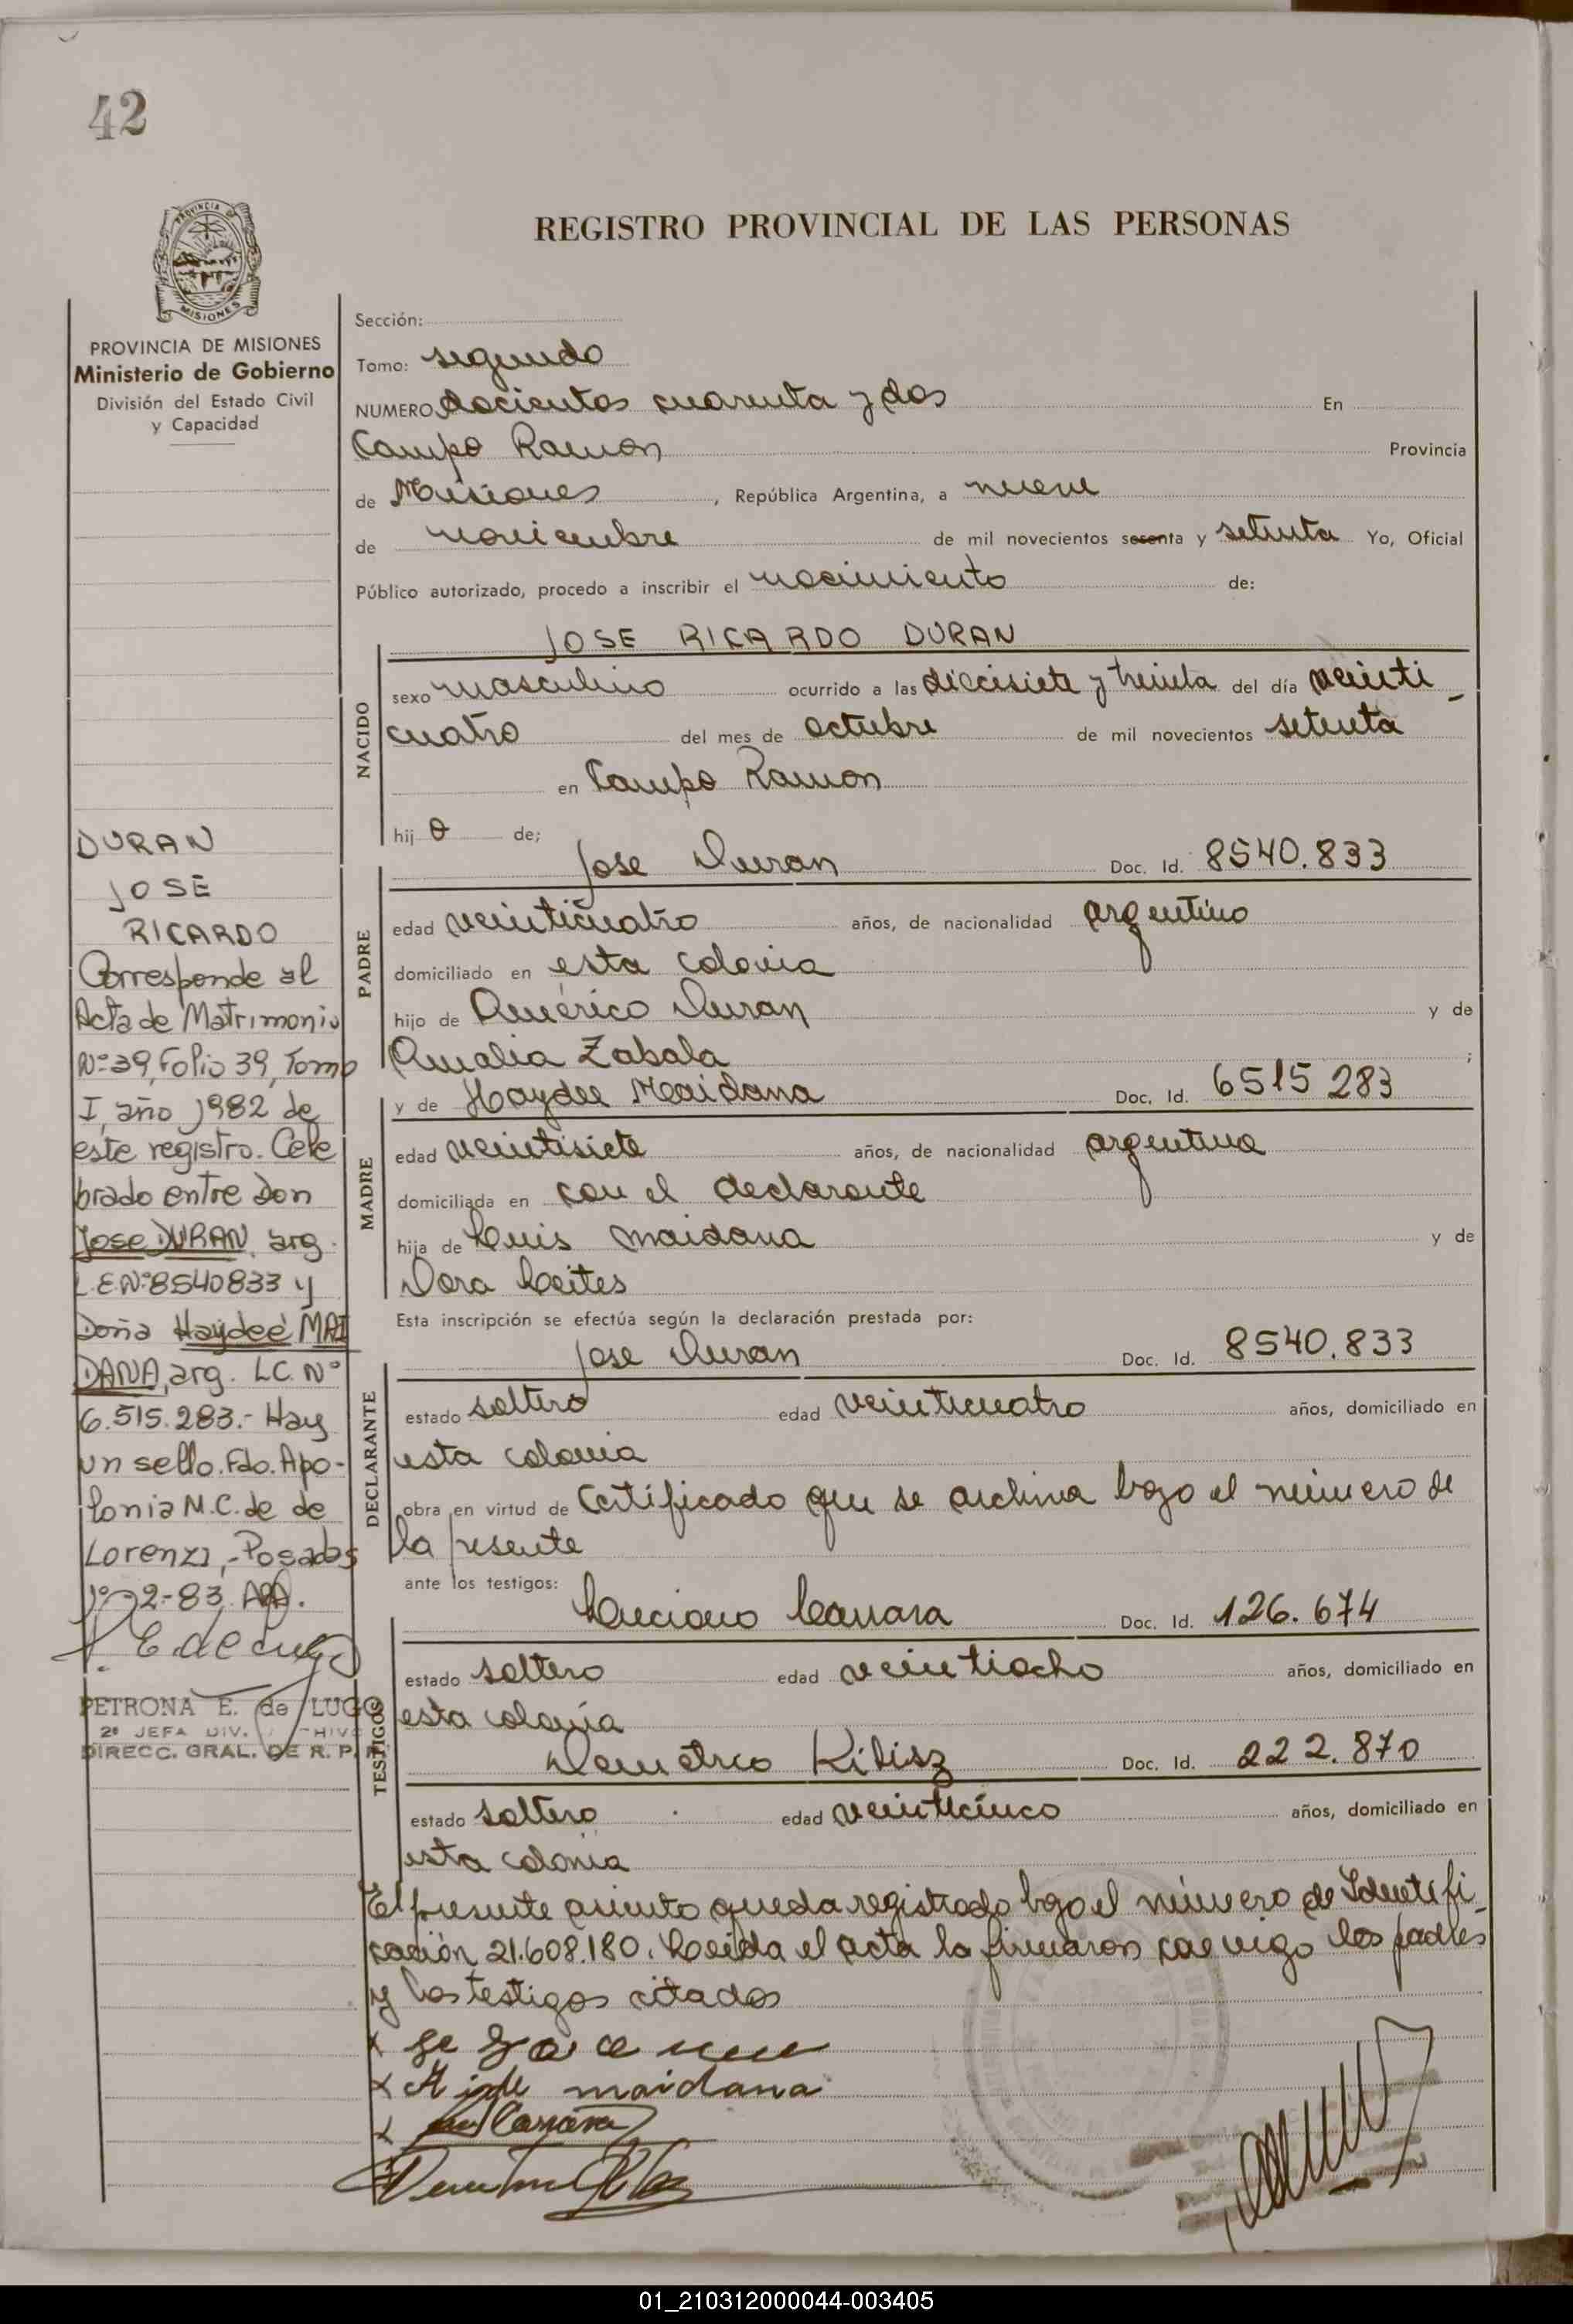 42
PROVINCIA DE
MISIONES
PROVINCIA DE MISIONES
Ministerio de Gobierno
División del Estado Civil
y Capacidad
DURAN
JOSE
RICARDO
Corresponde al
Acta de Matrimonio
Nº 39, Folio 39, Tomo
I, año 1982 de
este registro. Cele
brado entre Don
Jose DURAN, arg.
L.E.Nº 8540833 y
Doña Haydeé MAI
DANA, arg. LC. Nº
6.515.283.- Hay
un sello. Fdo. Apo-
lonia M.C. de de
Lorenzi,-Posadas
1º-2-83.
PETRONA E. de LUGO
2º JEFA DIV.
DIRECC. GRAL. DE R. P.
REGISTRO PROVINCIAL DE LAS PERSONAS
Sección:
Tomo: segundo
NUMERO docientos cuarenta y dos En
Campo Ramon Provincia
de Misiones, República Argentina, a nueve
de noviembre de mil novecientos sesenta y setenta Yo, Oficial
Público autorizado, procedo a inscribir el nacimiento de:
JOSE RICARDO DURAN
NACIDO
sexo masculino ocurrido a las diecisiete y treinta del día veinti-
cuatro del mes de octubre de mil novecientos setenta
en Campo Ramon
hijo de;
Jose Duran Doc. Id. 8540.833
PADRE
edad veinticuatro años, de nacionalidad argentino
domiciliado en esta colonia
hijo de Américo Duran y de
Amalia Zabala ;
y de Haydee Maidana Doc. Id. 6515 283
MADRE
edad veintisiete años, de nacionalidad argentina
domiciliada en con el declarante
hija de Luis maidana y de
Dora Leites
Esta inscripción se efectúa según la declaración prestada por:
Jose Duran Doc. Id. 8540.833
DECLARANTE
estado soltero edad veinticuatro años, domiciliado en
esta colonia
obra en virtud de Certificado que se archiva bajo el número de
la presente
ante los testigos:
Luciano Carrara Doc. Id. 126.674
TESTIGOS
estado soltero edad veintiocho años, domiciliado en
esta colonia
Demetrio Kibisz Doc. Id. 222.870
estado soltero edad veinticinco años, domiciliado en
esta colonia
El presente asiento queda registrado bajo el número de Identifi-
cación 21.608.180. Leida el acta la firmaron conmigo los padres
y los testigos citados
maidana
Carrara
01_210312000044-003405